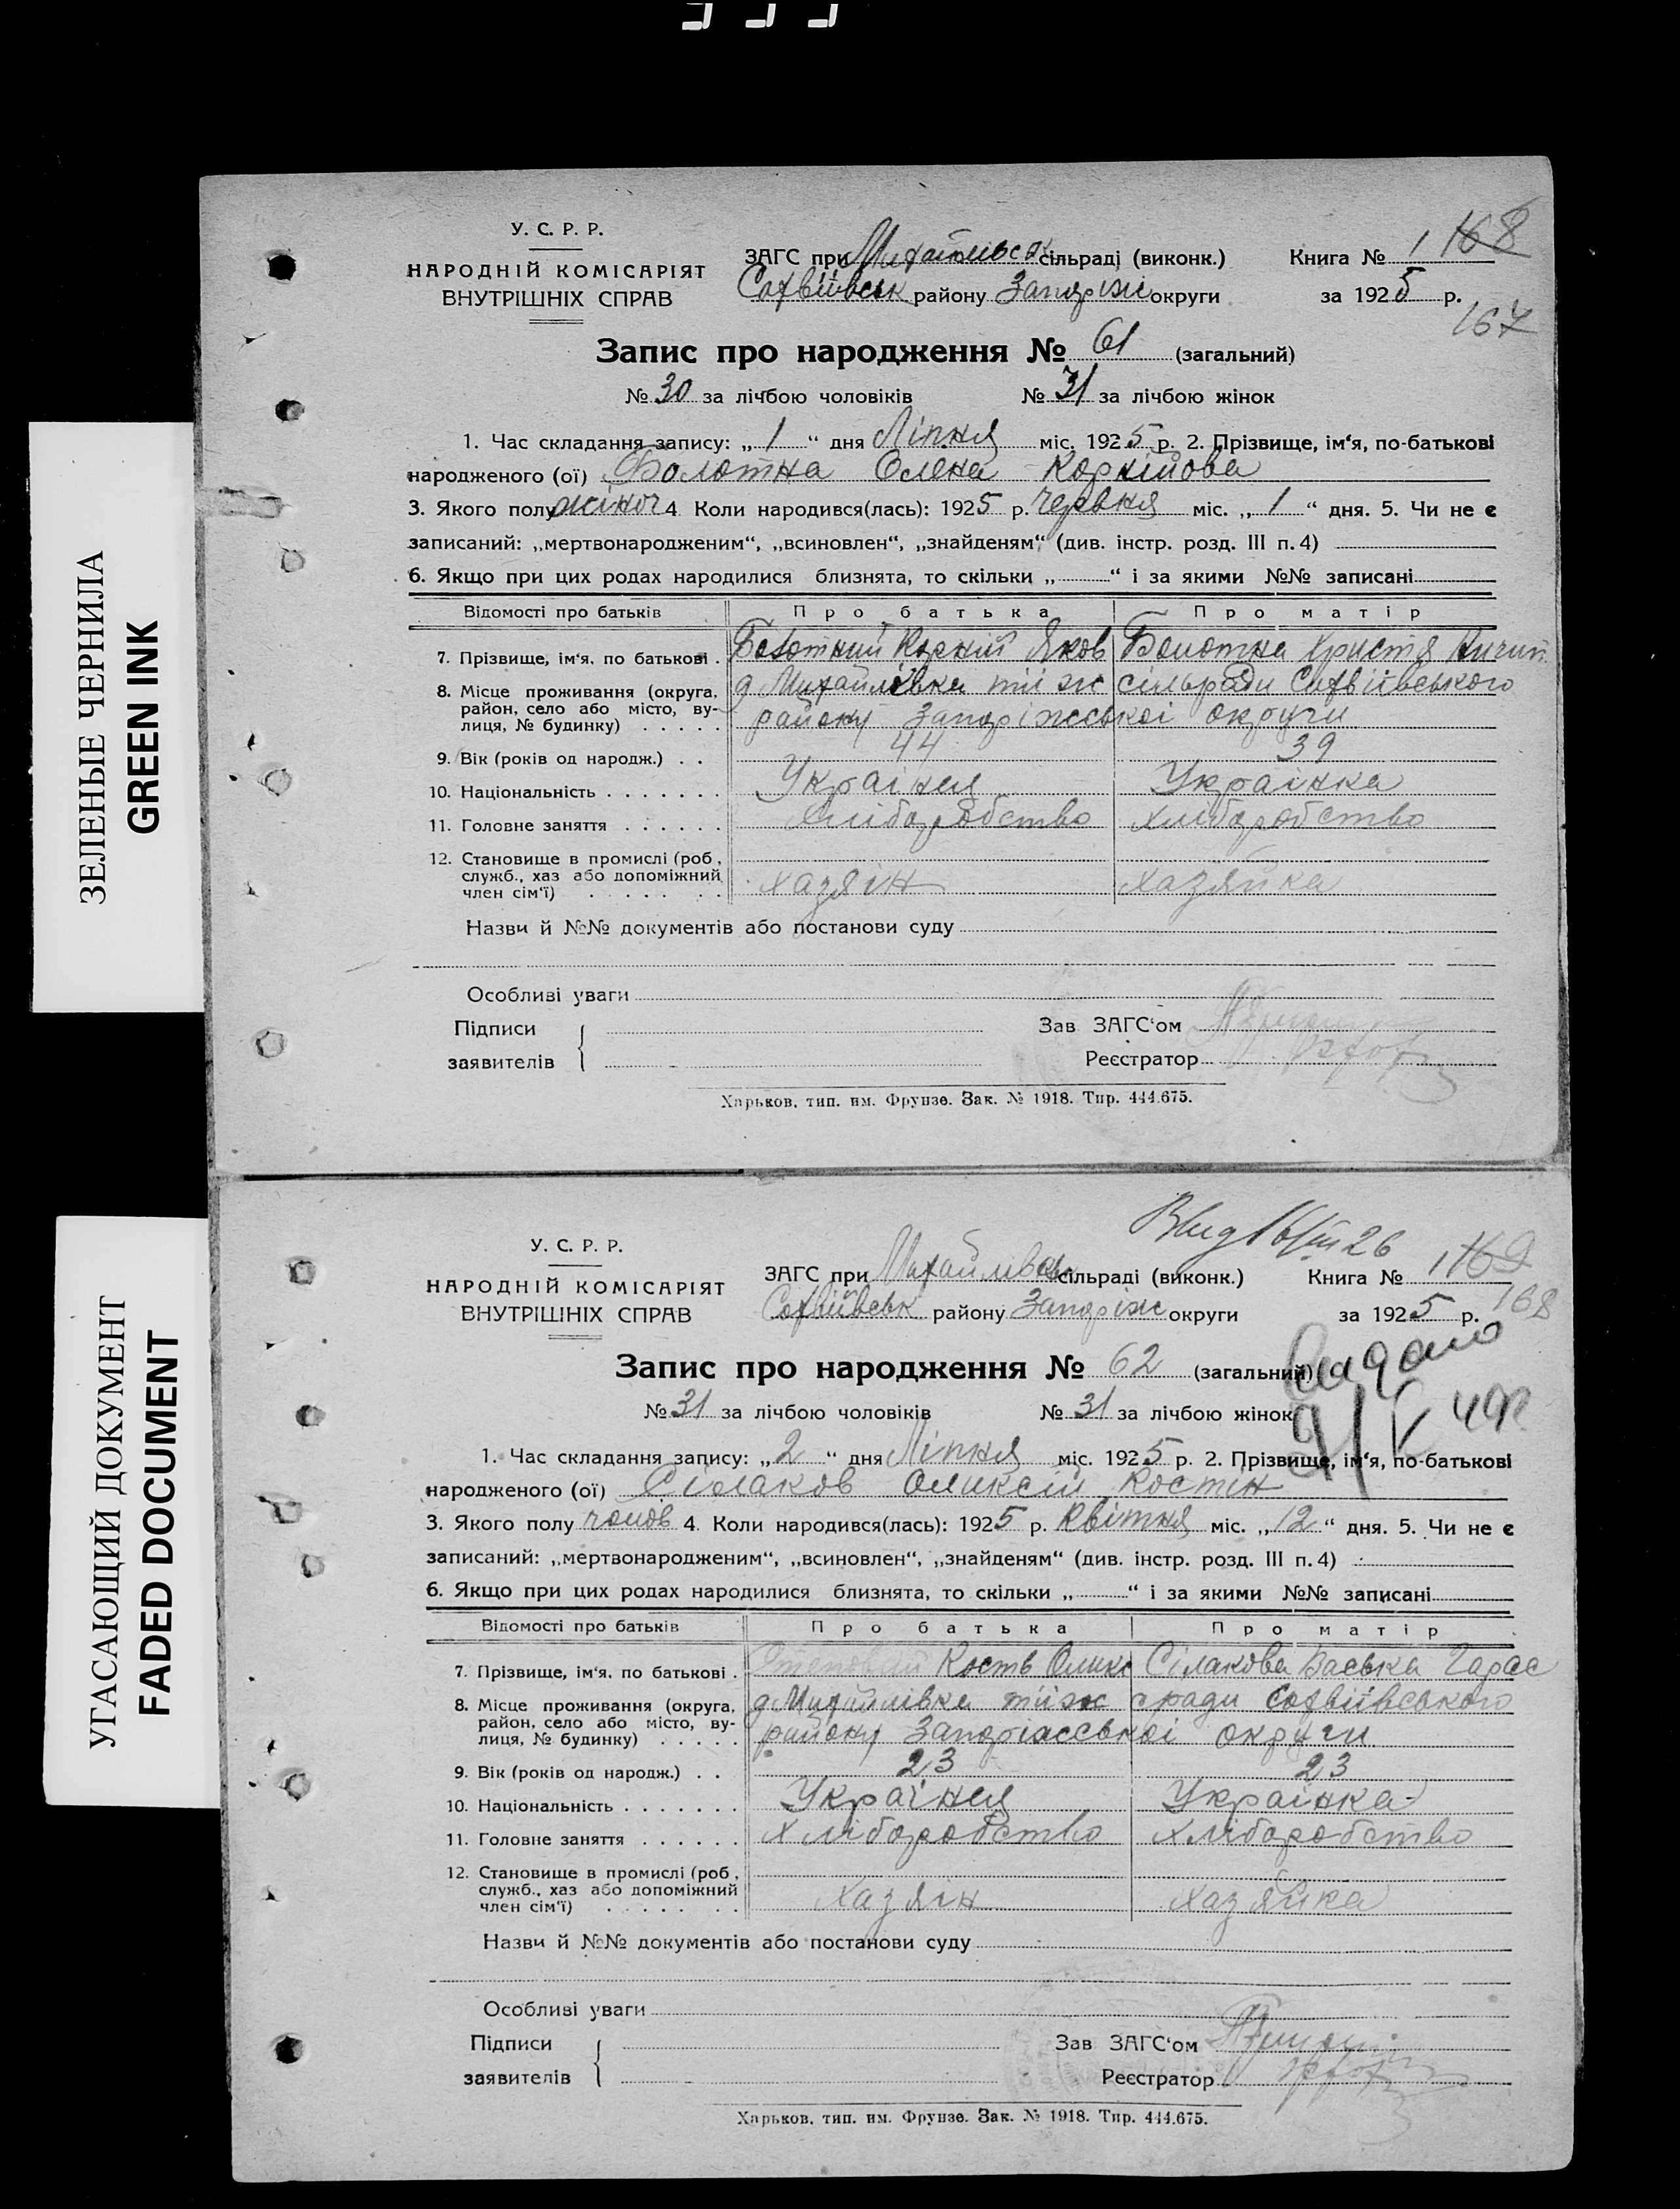 ЗЕЛЕНЫЕ ЧЕРНИЛА
GREEN INK
УГАСАЮЩИЙ ДОКУМЕНТ
FADED DOCUMENT
У. С. Р. Р.
НАРОДНІЙ КОМІСАРІЯТ
ВНУТРІШНІХ СПРАВ
ЗАГС при Михайлівськ сільраді (виконк.) Книга № 1 168
Софіївськ району Запоріж округи за 1925 р.
167
Запис про народження № 61 (загальний)
№ 30 за лічбою чоловіків № 31 за лічбою жінок
1. Час складання запису: „ 1 “ дня Ліпня міс. 1925 р. 2. Прізвище, ім‘я, по-батькові
народженого (ої) Болотна Олена Корнійова
3. Якого полу жіноч 4. Коли народився(лась): 1925 р. Червня міс. „ 1 “ дня. 5. Чи не є
записаний: „мертвонародженим“, „всиновлен“, „знайденям“ (див. інстр. розд. III п. 4)
6. Якщо при цих родах народилися близнята, то скільки „ “ і за якими №№ записані
Відомості про батьків Про батька Про матір
7. Прізвище, ім‘я, по батькові . Болотний Корній Яков Болотна Христя Кичит.
8. Місце проживання (округа, д Михайлівка тії ж сільради Софіївського
район, село або місто, ву- району Запоріжської округи
лиця, № будинку) . . . . .
9. Вік (років од народж.) . . 44 39
10. Національність . . . . . . . Українец Українка
11. Головне заняття . . . . . . Хліборобство Хліборобство
12. Становище в промислі (роб.,
служб., хаз або допоміжний Хазяін Хазяйка
член сім‘ї) . . . . . . .
Назви й №№ документів або постанови суду
Особливі уваги
Підписи Зав ЗАГС‘ом
заявителів Реєстратор
Харьков, тип. им. Фрунзе. Зак. № 1918. Тир. 444.675.
26
У. С. Р. Р.
НАРОДНІЙ КОМІСАРІЯТ
ВНУТРІШНІХ СПРАВ
ЗАГС при Михайлівськ сільраді (виконк.) Книга № 1 169
Софіївськ району Запоріж округи за 1925 р. 168
Видано
Запис про народження № 62 (загальний)
№ 31 за лічбою чоловіків № 31 за лічбою жінок
1. Час складання запису: „ 2 “ дня Ліпня міс. 1925 р. 2. Прізвище, ім‘я, по-батькові
народженого (ої) Сілаков Оликсій Костін
3. Якого полу чолов 4. Коли народився(лась): 1925 р. Квітня міс. „ 12 “ дня. 5. Чи не є
записаний: „мертвонародженим“, „всиновлен“, „знайденям“ (див. інстр. розд. III п. 4)
6. Якщо при цих родах народилися близнята, то скільки „ “ і за якими №№ записані
Відомості про батьків Про батька Про матір
7. Прізвище, ім‘я, по батькові . Кость Оликс Сілакова Васька Тарас
8. Місце проживання (округа, д Михайлівка тії ж сради Софіївського
район, село або місто, ву- району Запоріжської округи
лиця, № будинку) . . . . .
9. Вік (років од народж.) . . 23 23
10. Національність . . . . . . . Українец Українка
11. Головне заняття . . . . . . Хліборобство Хліборобство
12. Становище в промислі (роб.,
служб., хаз або допоміжний Хазяін Хазяйка
член сім‘ї) . . . . . . .
Назви й №№ документів або постанови суду
Особливі уваги
Підписи Зав ЗАГС‘ом
заявителів Реєстратор
Харьков, тип. им. Фрунзе. Зак. № 1918. Тир. 444.675.